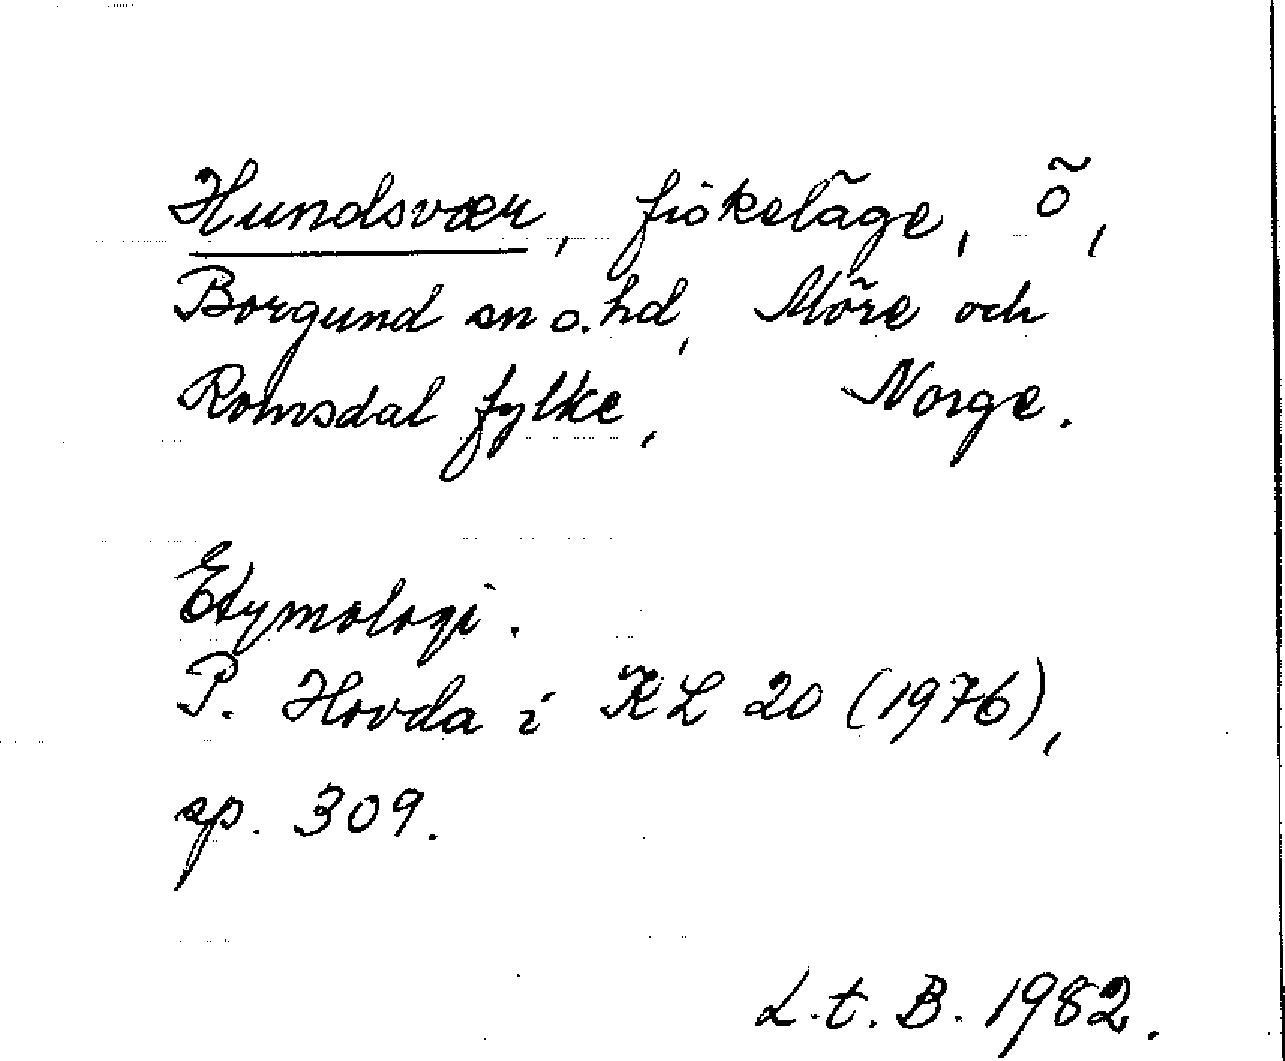 Hundsvær, fiskeläge, ö,
Borgund sn o. hd, Möre och
Romsdal fylke, Norge.
Etymologi.
P. Hovda i KL 20 (1976),
sp. 309.
L.t.B. 1982.